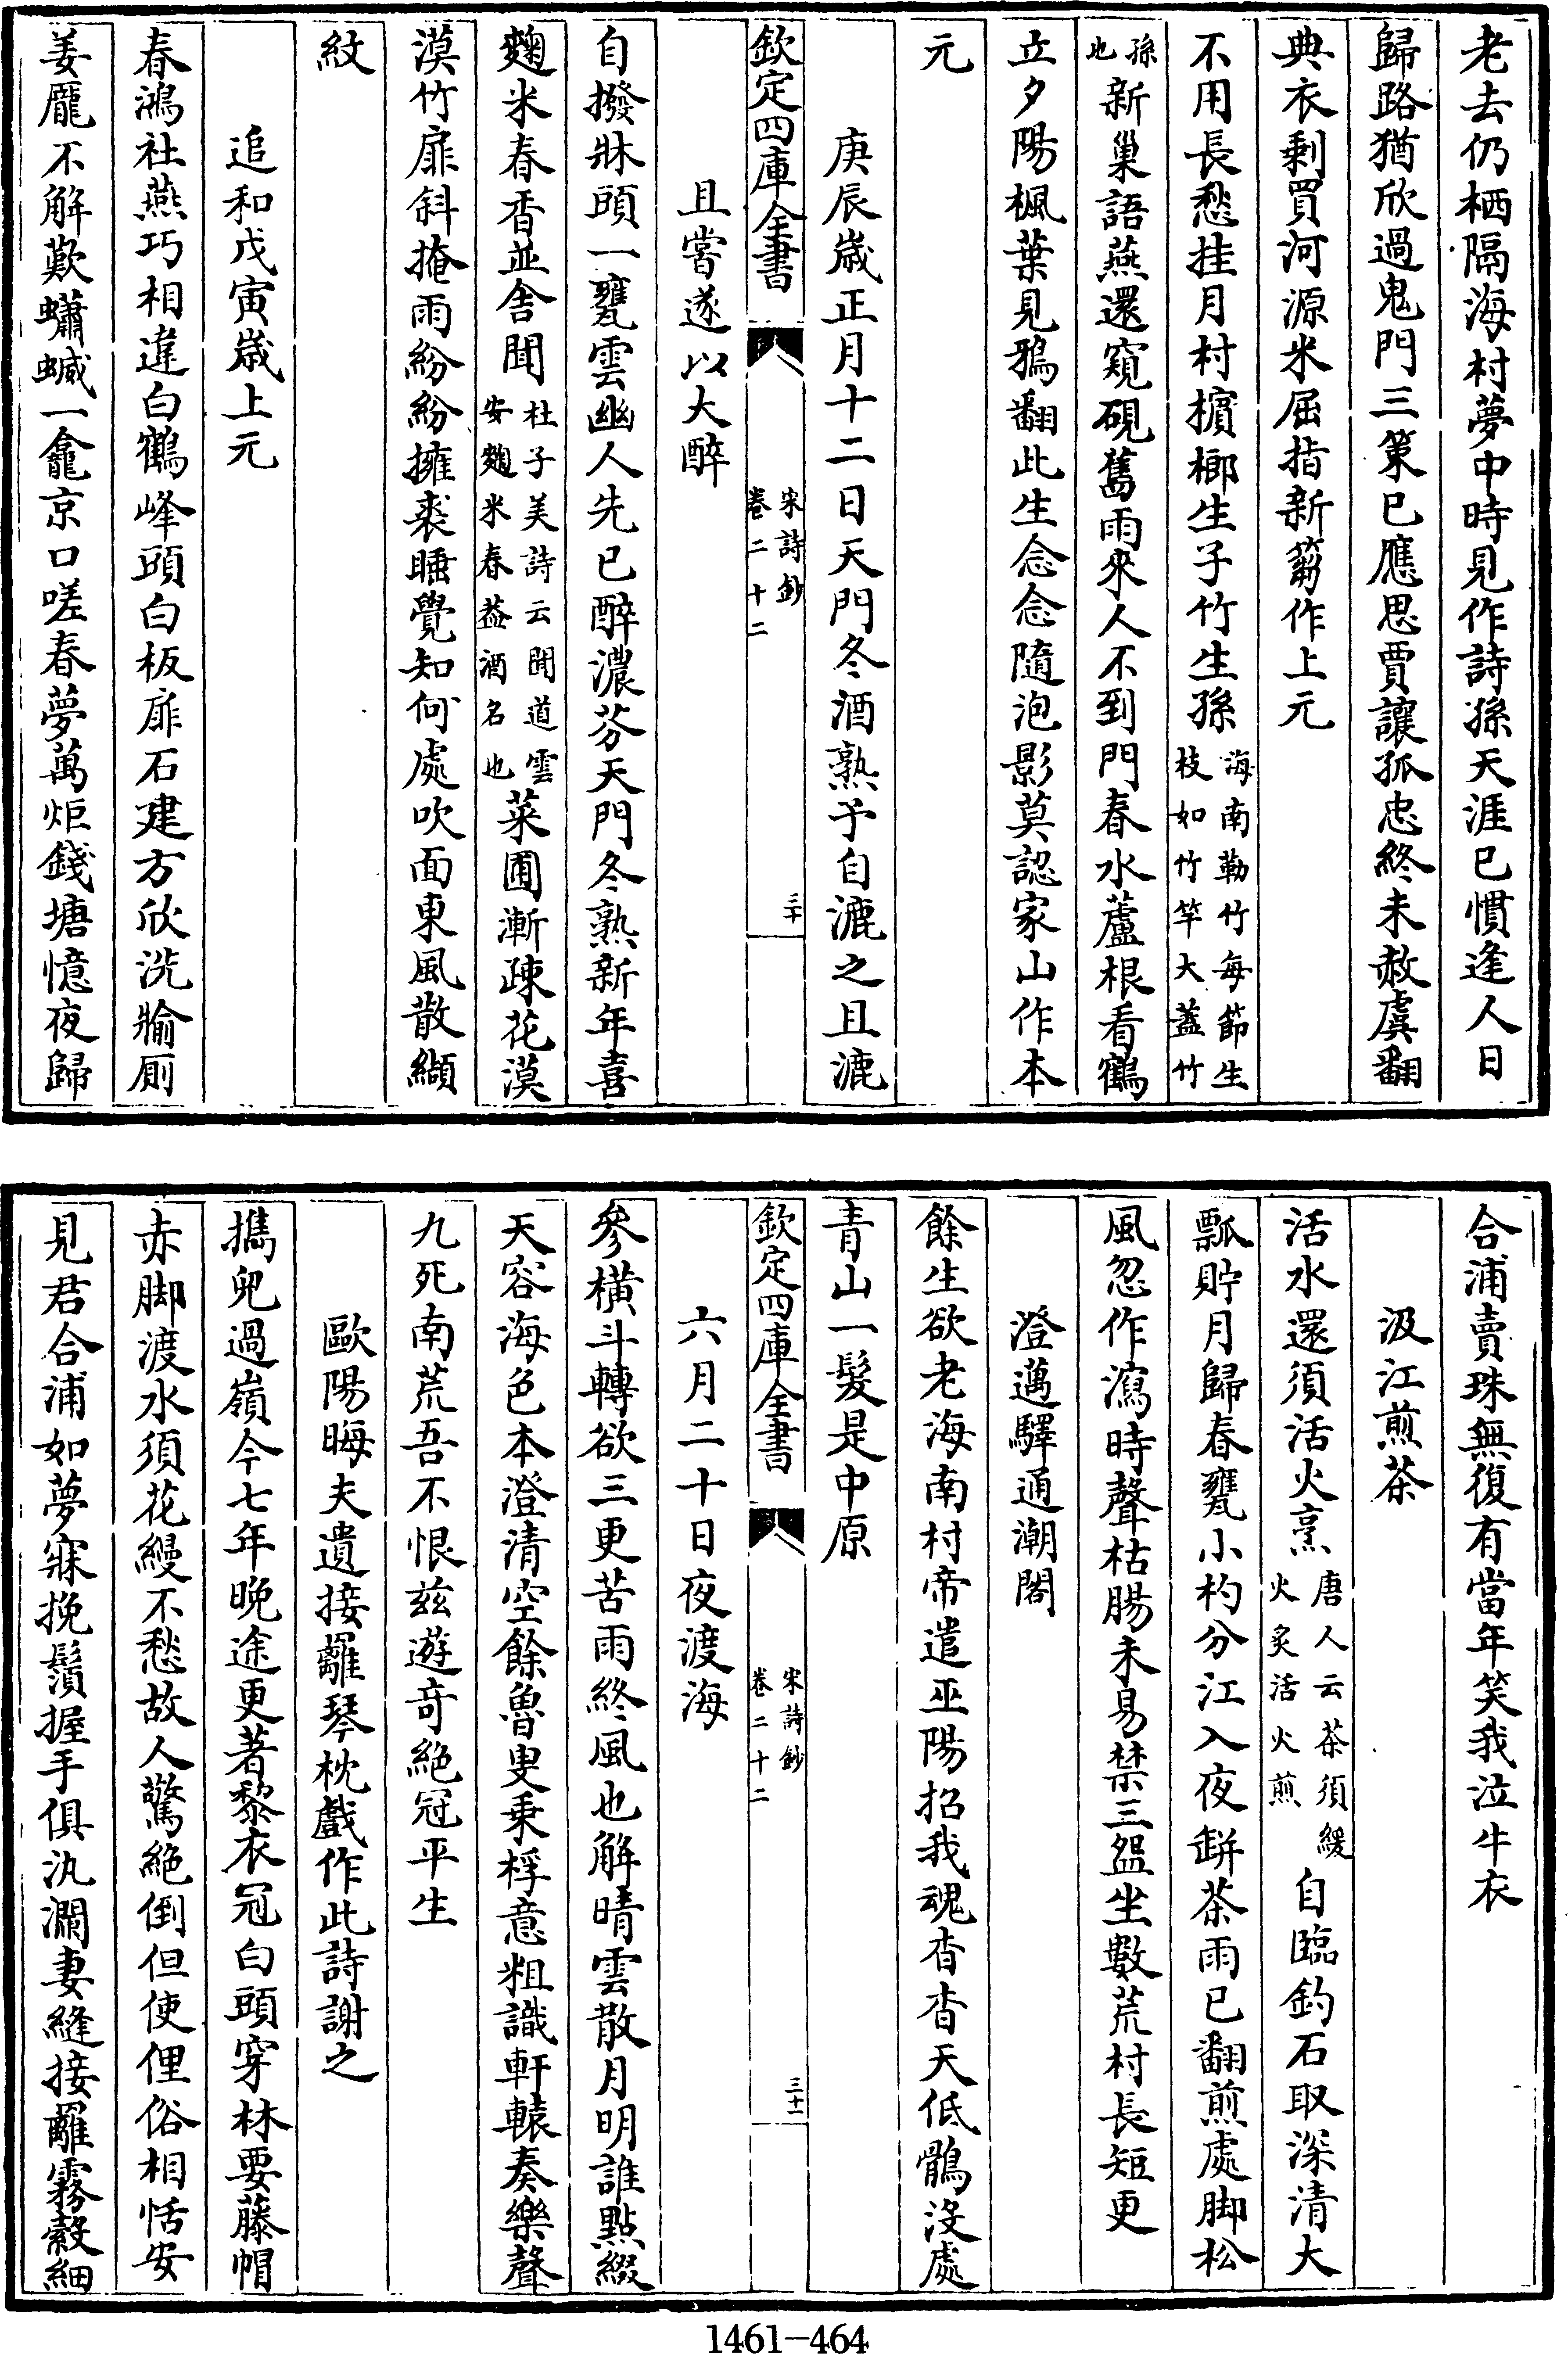 老去仍栖隔海村夢中時見作詩孫天涯已慣逢人日
歸路猶欣過鬼門三策已應思賈讓孤忠終未赦虞翻
典衣剩買河源米屈指新篘作上元
不用長愁挂月村檳榔生子竹生孫海南勒竹每節生枝如竹竿大蓋竹
孫也新巢語燕還窺硯舊雨來人不到門春水蘆根看鶴
立夕陽楓葉見鴉翻此生念念隨泡影莫認家山作本
元
庚辰歲正月十二日天門冬酒熟予自漉之且漉
欽定四庫全書
宋詩鈔
卷二十二
三十
且嘗遂以大醉
自撥牀頭一甕雲幽人先已醉濃芬天門冬熟新年喜
麴米春香並舍聞杜子美詩云聞道雲安麴米春葢酒名也菜圃漸疎花漠
漠竹扉斜掩雨紛紛擁裘睡覺知何處吹面東風散纈
紋
追和戊寅歲上元
春鴻社燕巧相違白鶴峰頭白板扉石建方欣洗牏厠
姜龐不解歎蠨蝛一龕京口嗟春夢萬炬錢塘憶夜歸
合浦賣珠無復有當年笑我泣牛衣
汲江煎茶
活水還須活火烹唐人云茶須緩火炙活火煎自臨釣石取深清大
瓢貯月歸春甕小杓分江入夜缾茶雨已翻煎處脚松
風忽作瀉時聲枯腸未易禁三盌坐數荒村長短更
澄邁驛通潮閣
餘生欲老海南村帝遣巫陽招我魂杳杳天低鶻沒處
青山一髮是中原
欽定四庫全書
宋詩鈔
卷二十二
三十一
六月二十日夜渡海
參橫斗轉欲三更苦雨終風也解晴雲散月明誰點綴
天容海色本澄清空餘魯叟乗桴意粗識軒轅奏樂聲
九死南荒吾不恨兹遊奇絕冠平生
歐陽晦夫遺接䍦琴枕戲作此詩謝之
攜兒過嶺今七年晚途更著黎衣冠白頭穿林要藤帽
赤脚渡水須花縵不愁故人驚絕倒但使俚俗相恬安
見君合浦如夢寐挽鬚握手俱汍瀾妻縫接䍦霧縠細
1461-464